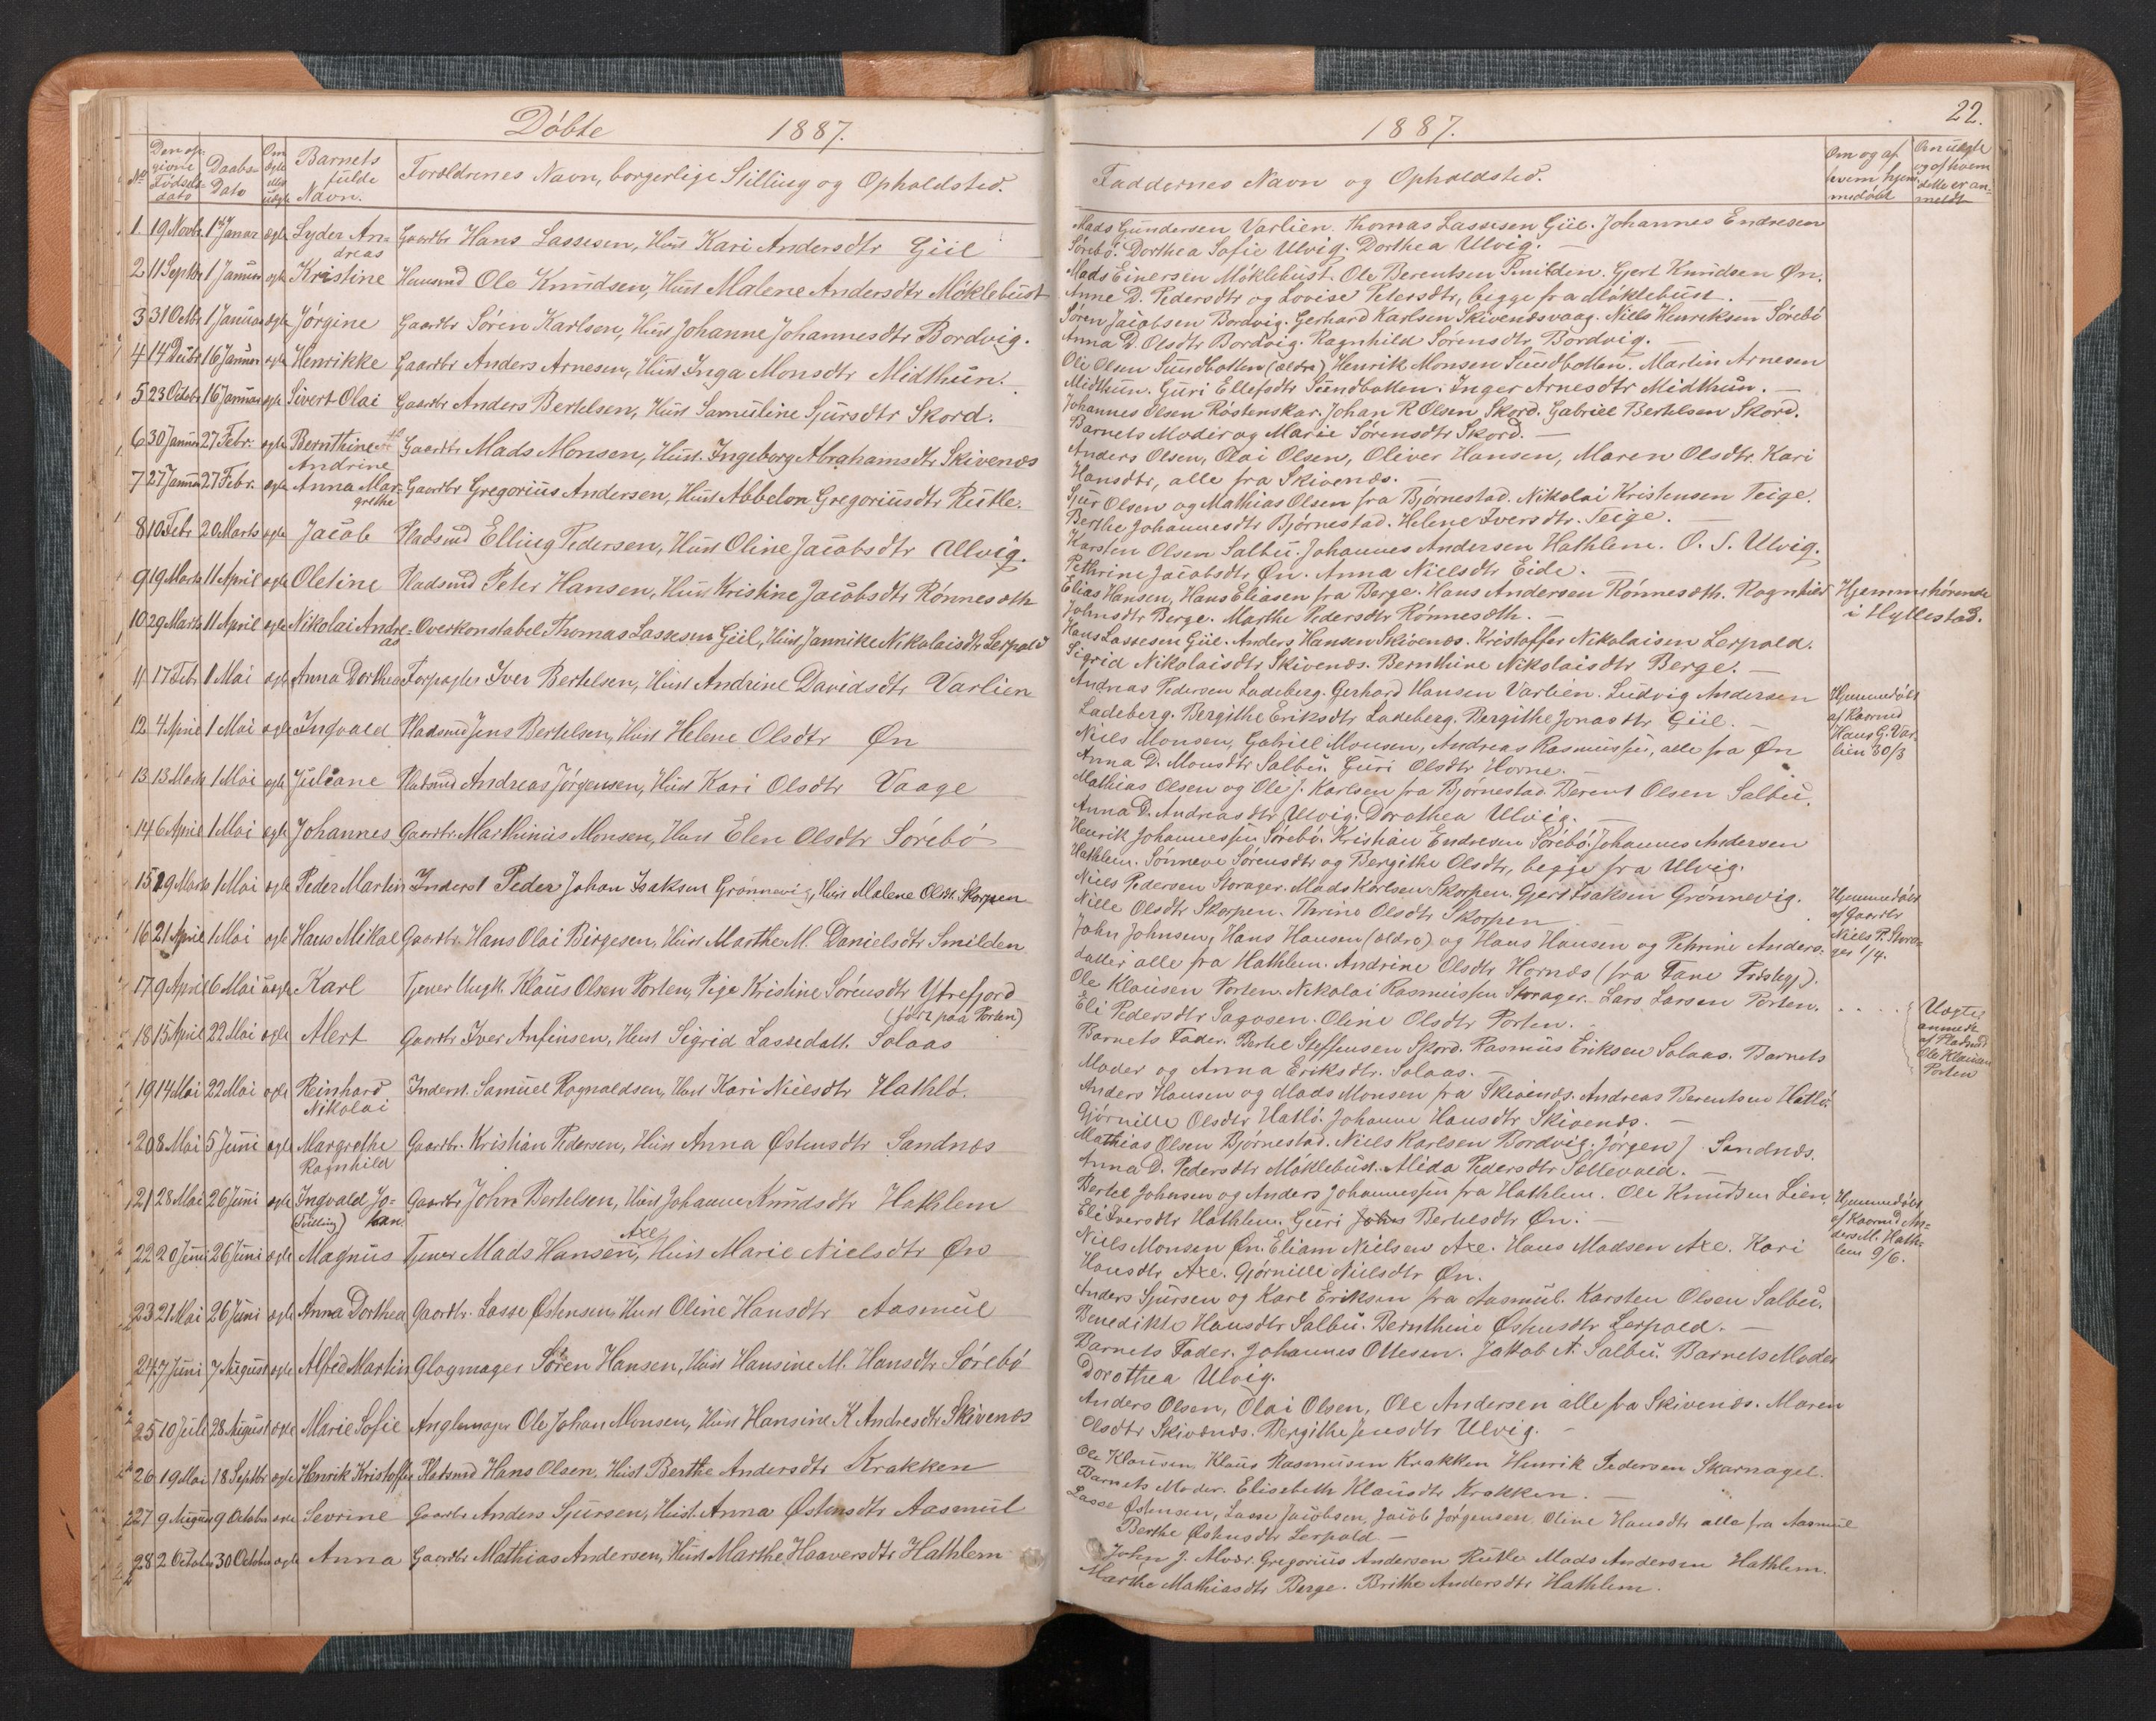 Döbte 1887.
No Den opgivne Fødselsdato Daabs-Dato Om ægte eller uægte Barnets fulde Navn. Forældrenes Navn, borgerlige Stilling og Opholdsted.
1 19 Novbr 1 Januar ægte Syder Andreas Gaardbr Hans Lassesen, Hust Kari Andersdtr Giil
2 11 Septbr 1 Januar ægte Kristine Huusmd Ole Knudsen, Hust Malene Andersdtr Möklebust
3 31 Octbr 1 Januar ægte Jörgine Gaardbr Sören Karlsen, Hust Johanne Johannesdtr Bordvig.
4 14 Decbr 16 Januar ægte Henrikke Gaardbr Anders Arnesen, Hust Inga Monsdtr Midthun.
5 23 Octobr 16 Januar ægte Sivert Olai Gaardbr Anders Bertelsen, Hust Samuline Sjursdtr Skord.
6 30 Januar 27 Febr. ægte Bernthine Andrine Gaardbr Mads Monsen, Hust. Ingeborg Abrahamsdtr Skivenæs
7 27 Januar 27 Febr. ægte Anna Margrethe Gaardbr Gregorius Andersen, Hust Abbelon Gregoriusdtr Rutle.
8 10 Febr 20 Marts ægte Jacob Pladsmd Elling Pedersen, Hust Oline Jacobsdtr Ulvig.
9 19 Marts 11 April ægte Oletine Pladsmd Peter Hansen, Hust Kristine Jacobsdtr Rönnesæth
10 29 Marts 11 April ægte Nikolai Andreas Overkonstabel Thomas Lassesen Giil, Hust Jannike Nikolaisdtr Lerpold
11 17 Febr 1 Mai ægte Anna Dorthea Forpagter Iver Bertelsen, Hust Andrine Davidsdtr Varlien
12 4 April 1 Mai ægte Ingvald Pladsmd Jens Bertelsen, Hust Helene Olsdtr Øn
13 13 Marts 1 Mai ægte Juliane Pladsmd Andreas Jörgensen, Hust Kari Olsdtr Vaage
14 6 April 1 Mai ægte Johannes Gaardbr. Marthinus Monsen, Hust Elen Olsdtr Sörebö
15 29 Marts 1 Mai ægte Peder Martin Inderst Peder Johan Isaksen Grönnevig, Hust Malene Olsdtr. Skorpen
16 21 April 1 Mai ægte Hans Mikal Gaardbr. Hans Olai Birgesen, Hust Marthe M. Danielsdtr Smilden
17 9 April 6 Mai uægte Karl Tjener Ungk. Klaus Olsen Porten, Pige Kristine Sörensdtr Ytrefjord
(född paa Porten)
18 15 April 22 Mai ægte Alert Gaardbr Iver Anfinsen, Hust Sigrid Lassedatt. Solaas
19 14 Mai 22 Mai ægte Reinhard Nikolai Inderst. Samuel Ragnvaldsen, Hust Kari Nielsdtr Hathlö.
20 8 Mai 5 Juni ægte Margrethe Ragnhild Gaardbr. Kristian Pedersen, Hust Anna Østensdtr Sandnæs
21 28 Mai 26 Juni ægte Ingvald Johan (Tvilling) Gaardbr John Bertelsen, Hust Johanne Knudsdtr Hathlem
22 20 Juni 26 Juni ægte Magnus Tjener Mads Hansen Axe, Hust Marie Nielsdtr Øn
23 21 Mai 26 Juni ægte Anna Dorthea Gaardbr. Lasse Østensen, Hust Oline Hansdtr Aasmul
24 7 Juni 7 August ægte Alfred Martin Glagmager Sören Hansen, Hust Hansine M. Hansdtr Sörebö
25 10 Juli 28 August ægte Marie Sofie Anglemager Ole Johan Monsen, Hust Hansine K Andresdtr Skivenæs
26 19 Mai 18 Septbr ægte Henrik Kristoffer Pladsmd Hans Olsen, Hust Berthe Andersdtr Krakken
27 9 August 9 Octobr ægte Sevrine Gaardbr Anders Sjursen, Hust. Anna Østensdtr Aasmul
28 2 Octobr 30 Octobr ægte Anna Gaardbr Mathias Andersen, Hust Marthe Haaversdtr Hathlem
22.
1887.
Faddernes Navn og Opholdsted. Om og af hvem hjemmedöbt Om uægte og af hvem dette er anmeldt
Mads Gundersen Varlien. Thomas Lassesen Giil. Johannes Endresen
Sörebö. Dorthea Sofie Ulvig. Dorthea Ulvig.
Mads Einersen Möklebust. Ole Berentsen Smilden. Gjert Knudsen Øn.
Anne D. Pedersdtr og Lovise Petersdtr, begge fra Möklebust.
Sören Jacobsen Bordvig. Gerhard Karlsen Skivenæsvaag. Niels Henriksen Sörebö
Anna D. Olsdtr Bordvig. Ragnhild Sörensdtr Bordvig.
Ole Olsen Sundbotten (ældre) Henrik Monsen Sundbotten. Martin Arnesen
Midthun. Guri Ellefsdtr Sundbotten. Inger Arnesdtr Midthun.
Johannes Olsen Röstenskar. Johan R Olsen Skord. Gabriel Bertelsen Skord.
Barnets Moder og Marie Sörensdtr Skord.
Anders Olsen, Olai Olsen, Oliver Hansen, Maren Olsdtr. Kari
Hansdtr, alle fra Skivenæs.
Sjur Olsen og Mathias Olsen fra Björnestad. Nikolai Kristensen Teige.
Berthe Johannesdtr Björnestad. Helene Iversdtr. Teige.
Karsten Olsen Salbu. Johannes Andersen Hathlem. O. S. Ulvig.
Pethrine Jacobsdtr Øn. Anna Nielsdtr Eide.
Elias Hansen, Hans Eliasen fra Berge. Hans Andersen Rönnesæth. Ragnhild
Johnsdtr Berge. Marthe Pedersdtr Rönnesæth.
Hjemmehörende i Hyllestad.
Hans Lassesen Giil. Anders Hansen Skivenæs. Kristoffer Nikolaisen Lerpold.
Sigrid Nikolaisdtr Skivenæs. Bernthine Nikolaisdtr Berge.
Andreas Pedersen Ladeberg. Gerhard Hansen Varlien. Ludvig Andersen
Ladeberg. Bergithe Eriksdtr Ladeberg. Bergithe Jonasdtr Giil.
Hjemmedöbt af Kaarmd Hans G. Varlien 30/3
Niels Monsen, Gabriel Monsen, Andreas Rasmussen, alle fra Øn
Anna D. Monsdtr Salbu. Guri Olsdtr Horne.
Mathias Olsen og Ole J. Karlsen fra Björnestad. Berent Olsen Salbu.
Anna D. Andreasdtr Ulvig. Dorothea Ulvig.
Henrik Johannessen Sörebö. Kristian Endresen Sörebö. Johannes Andersen
Hathlem. Sönneve Sörensdtr og Bergithe Olsdtr, begge fra Ulvig.
Niels Pedersen Storager. Mads Karlsen Skorpen. Gjert Isaksen Grönnevig.
Nille Olsdtr Skorpen. Thrine Olsdtr Skorpen
Hjemmedöbt af Gaardbr Niels P. Storager 1/4.
John Johnsen, Hans Hansen (ældre) og Hans Hansen og Pethrine Anders-
datter alle fra Hathlem. Andrine Olsdtr Hornæs (fra Fane Prstegj).
Ole Klausen Porten. Nikolai Rasmussen Storager. Lars Larsen Porten.
Eli Pedersdtr Sagosen. Oline Olsdtr Porten.
Uægte anmeldt af Pladsmd Ole Klausen Porten
Barnets Fader. Bertel Steffensen Skord. Rasmus Eriksen Solaas. Barnets
Moder og Anna Eriksdtr. Solaas.
Anders Hansen og Mads Monsen fra Skivenæs. Andreas Berentsen Hatlö.
Gjörnille Olsdtr Hatlö. Johanne Hansdtr Skivenæs.
Mathias Olsen Björnestad. Niels Karlsen Bordvig. Jörgen J. Sandnæs.
Anna D. Pedersdtr Möklebust. Alida Pedersdtr Sollevold.
Bertel Johnsen og Anders Johannessen fra Hathlem. Ole Knudsen Lien,
Eli Iversdtr Hathlem. Guri Johns Bertelsdtr Øn.
Hjemmedöbt af Kaarmd Anders M. Hathlem 9/6.
Niels Monsen Øn. Eliam Nielsen Axe. Hans Madsen Axe. Kari
Hansdtr Axe. Gjörnille Nielsdtr Øn.
Anders Sjursen og Karl Eriksen fra Aasmul. Karsten Olsen Salbu.
Benedikte Hansdtr Salbu. Bernthine Østensdtr Lerpold.
Barnets Fader. Johannes Ottesen. Jakob A. Salbu. Barnets Moder
Dorothea Ulvig.
Anders Olsen, Olai Olsen, Ole Andersen alle fra Skivenæs. Maren
Olsdtr Skivenæs. Bergithe Jensdtr Ulvig.
Ole Klausen, Klaus Rasmusen Krakken Henrik Pedersen Skarnagel.
Barnets Moder. Elisabeth Klausdtr Krakken.
Lasse Østensen, Lasse Jacobsen, Jacob Jörgensen. Oline Hansdtr alle fra Aasmul
Berthe Østensdtr Lerpold.
John J. Alvær. Gregorius Andersen Rutle Mads Andersen Hathlem.
Marthe Mathiasdtr Berge. Brithe Andersdtr Hathlem.